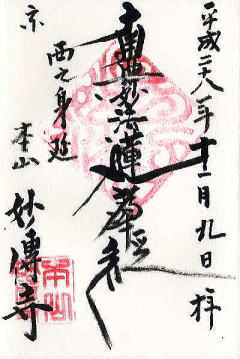 平成二十八年十一月九日 拝
南無妙法蓮華経
西之身延
京
本山
妙傳寺